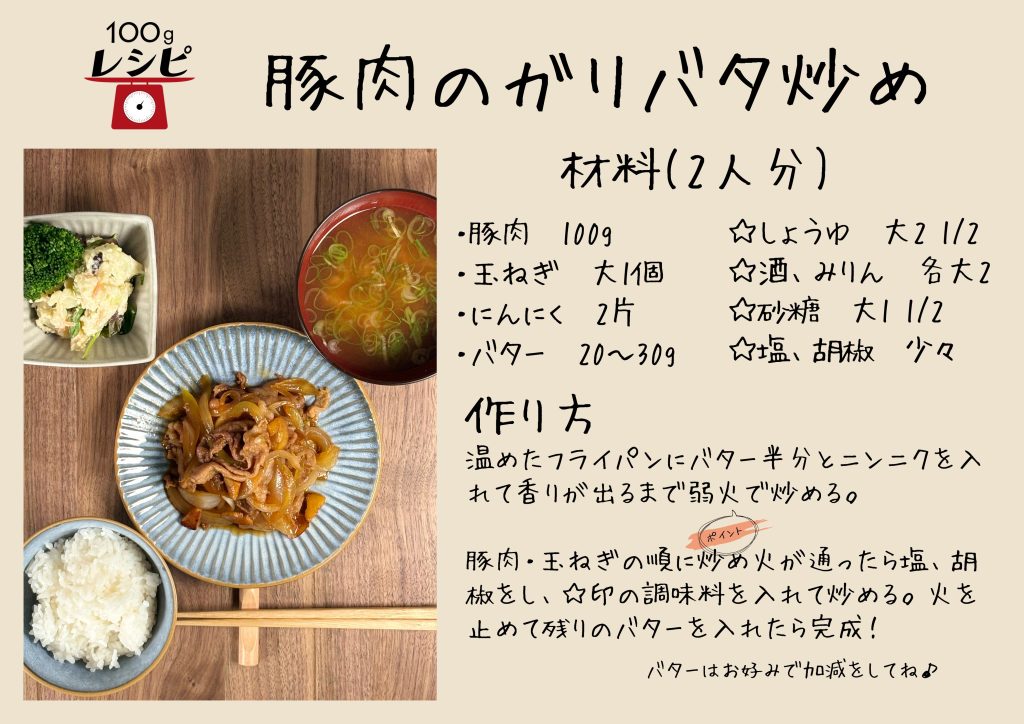 100g
レシピ
豚肉のガリバタ炒め
材料(2人分)
・豚肉 100g
・玉ねぎ 大1個
・にんにく 2片
・バター 20〜30g
☆しょうゆ 大2 1/2
☆酒、みりん 各大2
☆砂糖 大1 1/2
☆塩、胡椒 少々
作り方
温めたフライパンにバター半分とニンニクを入
れて香りが出るまで弱火で炒める。
ポイント
豚肉・玉ねぎの順に炒め火が通ったら塩、胡
椒をし、☆印の調味料を入れて炒める。火を
止めて残りのバターを入れたら完成！
バターはお好みで加減をしてね♪